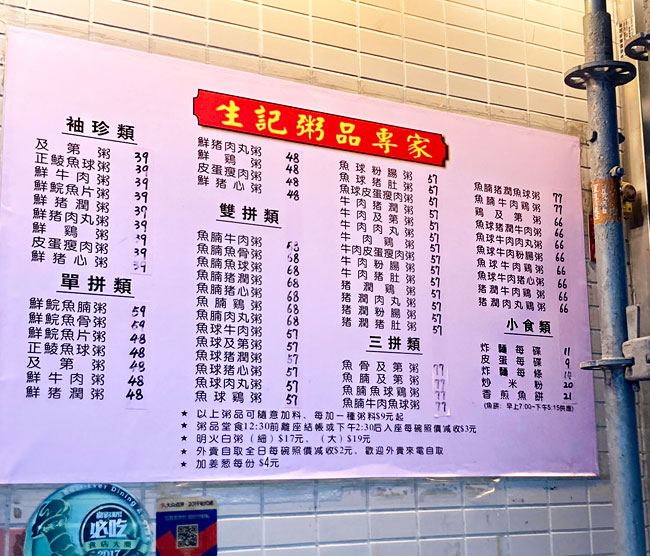 生記粥品專家
袖珍類
及第粥 39
正鯪魚球粥 39
鮮牛肉粥 39
鮮鯇魚片粥 39
鮮豬潤粥 39
鮮豬肉丸粥 39
鮮雞粥 39
皮蛋瘦肉粥 39
鮮豬心粥 39
單拼類
鮮鯇魚腩粥 59
鮮鯇魚骨粥 59
鮮鯇魚片粥 48
正鯪魚球粥 48
及第粥 48
鮮牛肉粥 48
鮮豬潤粥 48
鮮豬肉丸粥 48
鮮雞粥 48
皮蛋瘦肉粥 48
鮮豬心粥 48
雙拼類
魚腩牛肉粥 68
魚腩魚骨粥 68
魚腩魚球粥 68
魚腩豬潤粥 68
魚腩豬心粥 68
魚腩雞粥 68
魚腩肉丸粥 68
魚球牛肉粥 57
魚球及第粥 57
魚球豬潤粥 57
魚球豬心粥 57
魚球雞粥 57
魚球肉丸粥 57
魚球粉腸粥 57
魚球豬肚粥 57
魚球皮蛋瘦肉粥 57
牛肉豬潤粥 57
牛肉及第粥 57
牛肉肉丸粥 57
牛肉雞粥 57
牛肉皮蛋瘦肉粥 57
牛肉粉腸粥 57
牛肉豬肚粥 57
豬潤雞粥 57
豬潤肉丸粥 57
豬潤粉腸粥 57
豬潤豬肚粥 57
三拼類
魚骨及第粥 77
魚腩及第粥 77
魚腩魚球牛肉粥 77
魚腩牛肉魚球粥 77
魚腩豬潤魚球粥 77
魚腩牛肉雞粥 77
雞及第粥 66
魚球豬潤牛肉粥 66
魚球牛肉肉丸粥 66
魚球牛肉粉腸粥 66
魚球牛肉雞粥 66
魚球牛肉豬心粥 66
豬潤牛肉雞粥 66
豬潤肉丸雞粥 66
小食類
炸麵每碟 11
皮蛋每碟 9
炸麵每條
炒米粉 20
香煎魚餅 21
(魚餅:早上7:00~下午5:15供應)
★ 以上粥品可隨意加料、每加一種粥料$9元起
★ 粥品堂食12:30前離座結帳或下午2:30后入座每碗照價減收$3元
★ 明火白粥(細)$17元,(大)$19元
★ 外賣自取全日每碗照價減收$2元,歡迎外賣來電自取
★ 加姜葱每份 $4元
必吃
食店大獎
2017